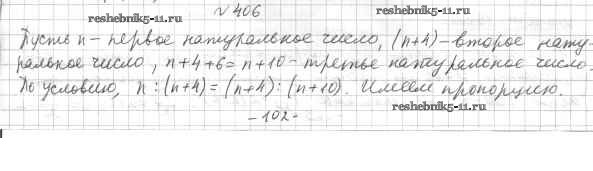 № 406
reshebnik5-11.ru
reshebnik5-11.ru
Пусть n - первое натуральное число, (n+4) - второе нату-
ральное число, n+4+6=n+10 - третье натуральное число.
По условию, n : (n+4) = (n+4) : (n+10). Имеем пропорцию.
reshebnik5-11.ru
- 102 -